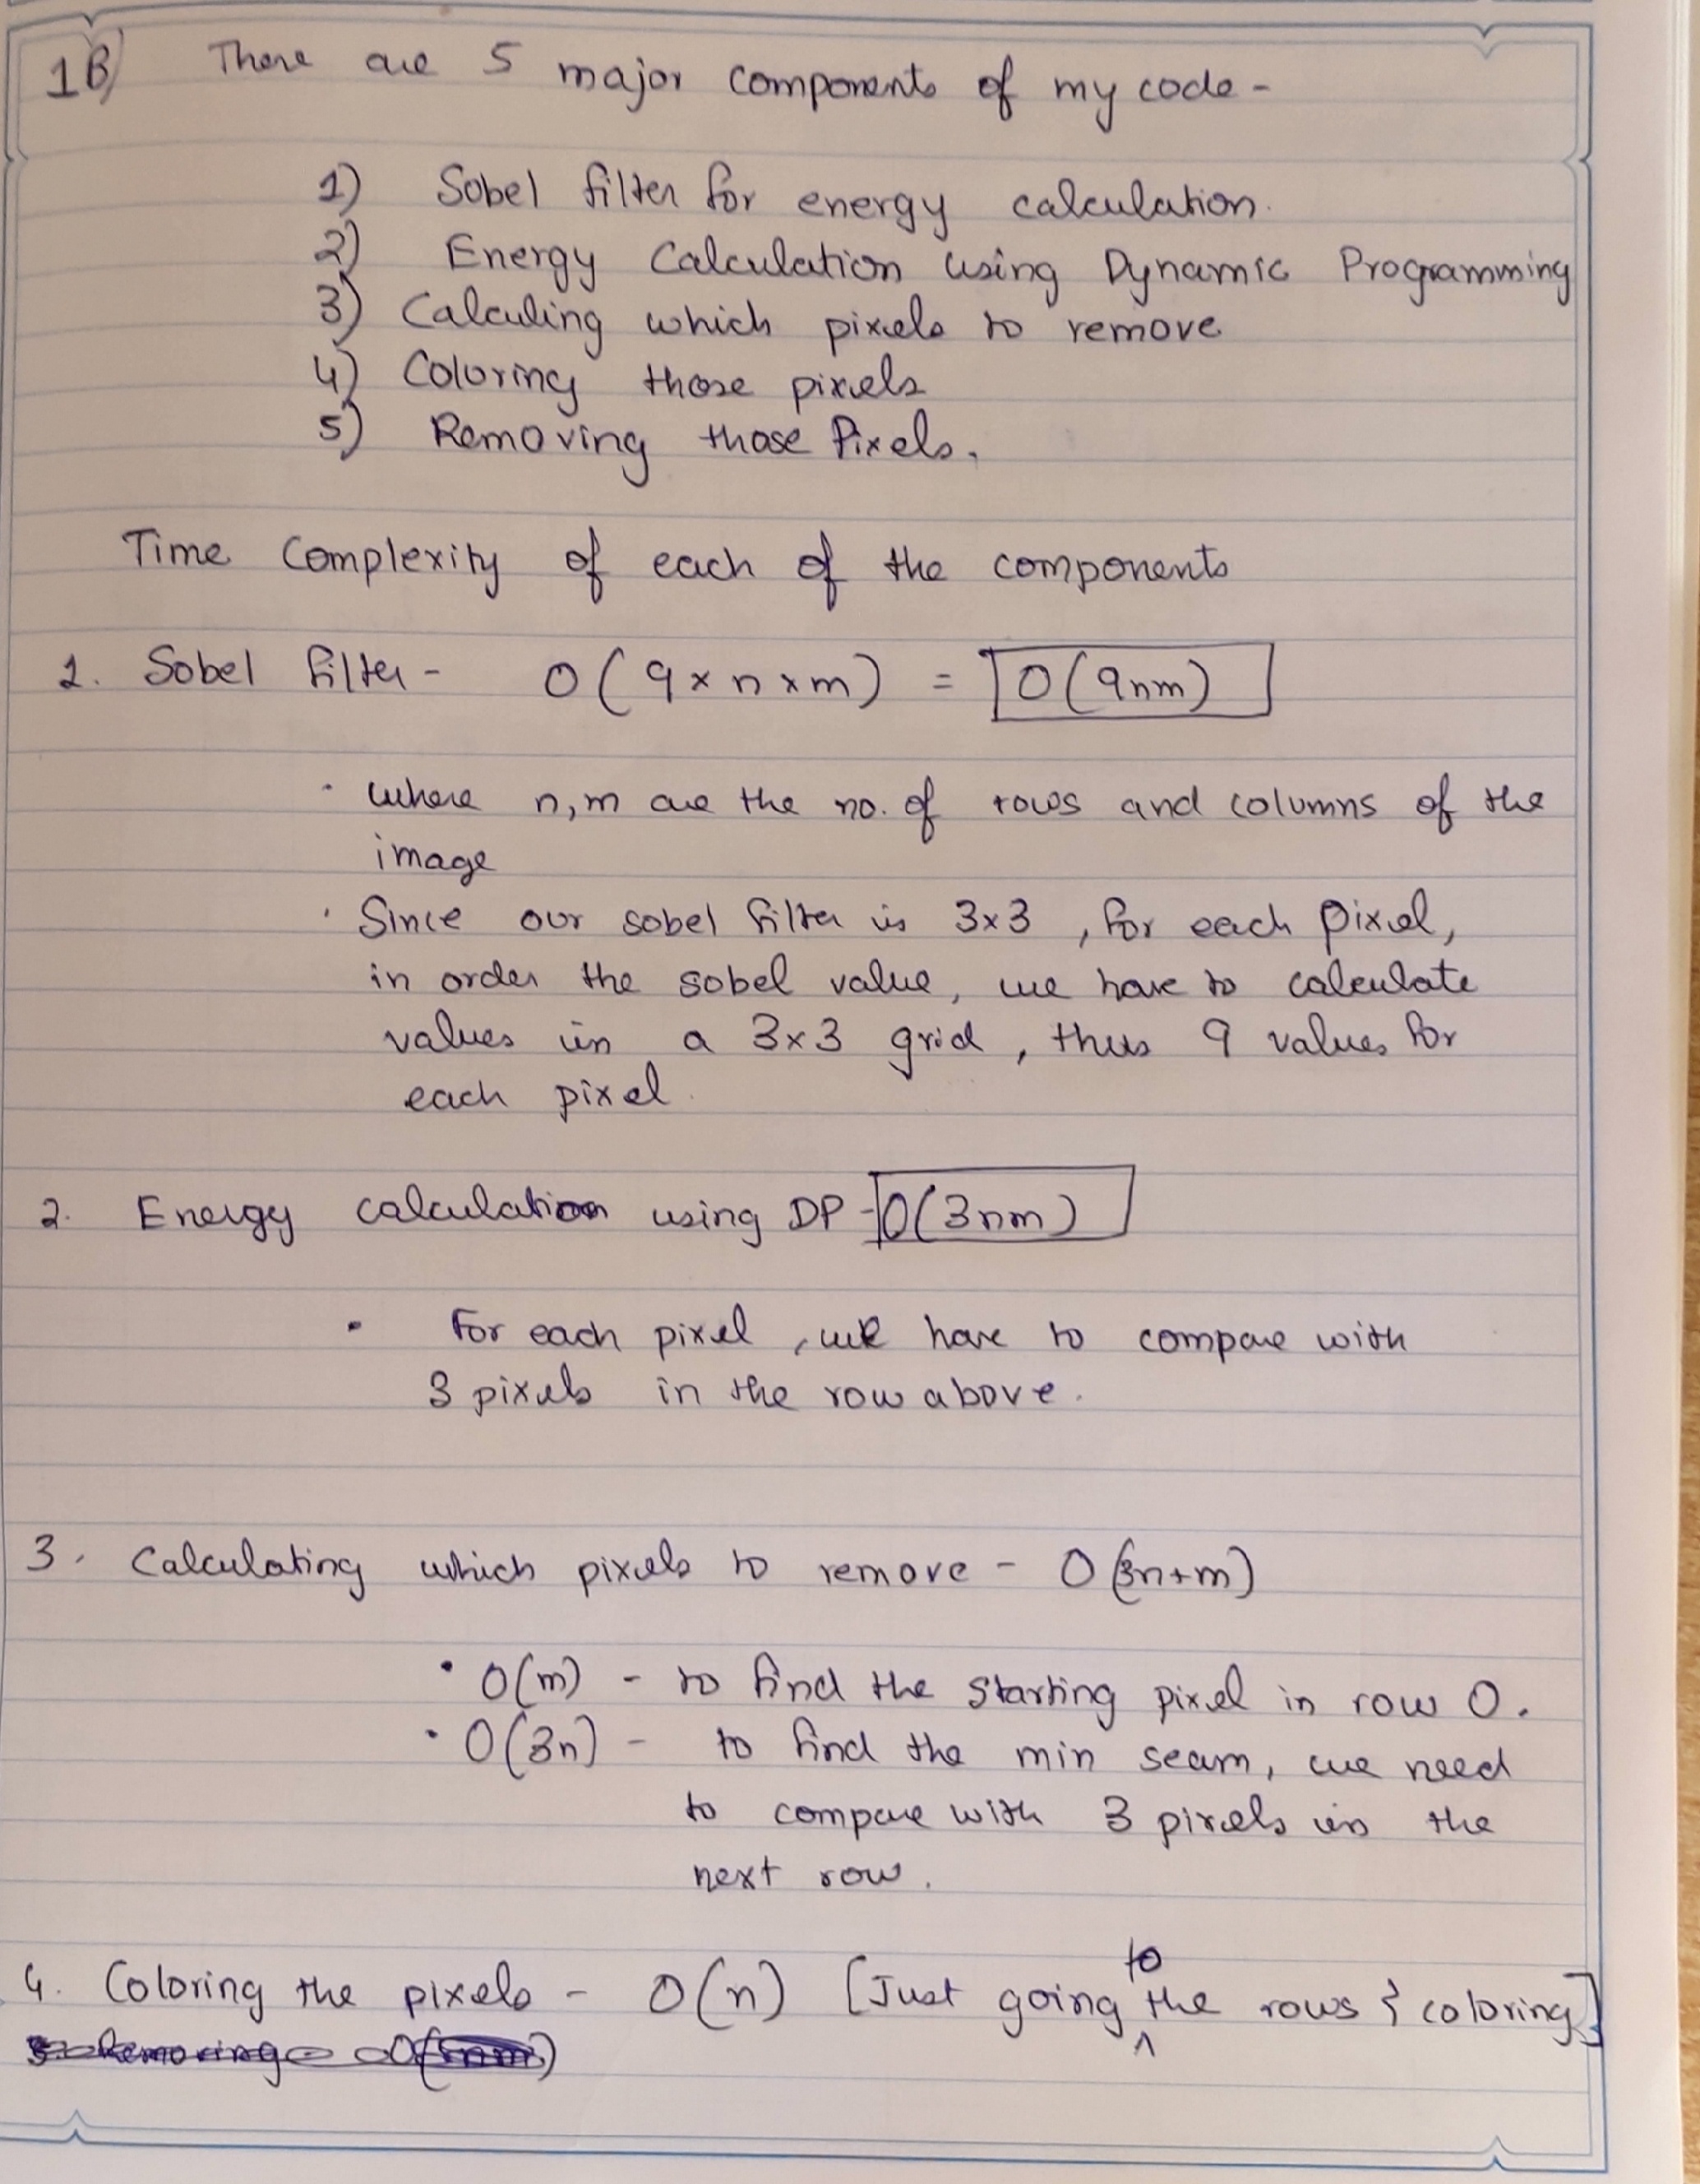 1B) There are 5 major components of my code -
1) Sobel filter for energy calculation.
2) Energy Calculation using Dynamic Programming
3) Calculing which pixels to remove
4) Coloring those pixels
5) Removing those Pixels.
Time Complexity of each of the components
1. Sobel filter - O(9 × n × m) = O(9nm)
· where n, m are the no. of rows and columns of the
image
· Since our sobel filter is 3x3, for each pixel,
in order the sobel value, we have to calculate
values in a 3x3 grid, thus 9 values for
each pixel.
2. Energy calculation using DP - O(3nm)
· For each pixel, we have to compare with
3 pixels in the row above.
3. Calculating which pixels to remove - O(3n+m)
· O(m) - to find the starting pixel in row 0.
· O(3n) - to find the min seam, we need
to compare with 3 pixels in the
next row.
4. Coloring the pixels - O(n) [Just going to the rows & coloring]